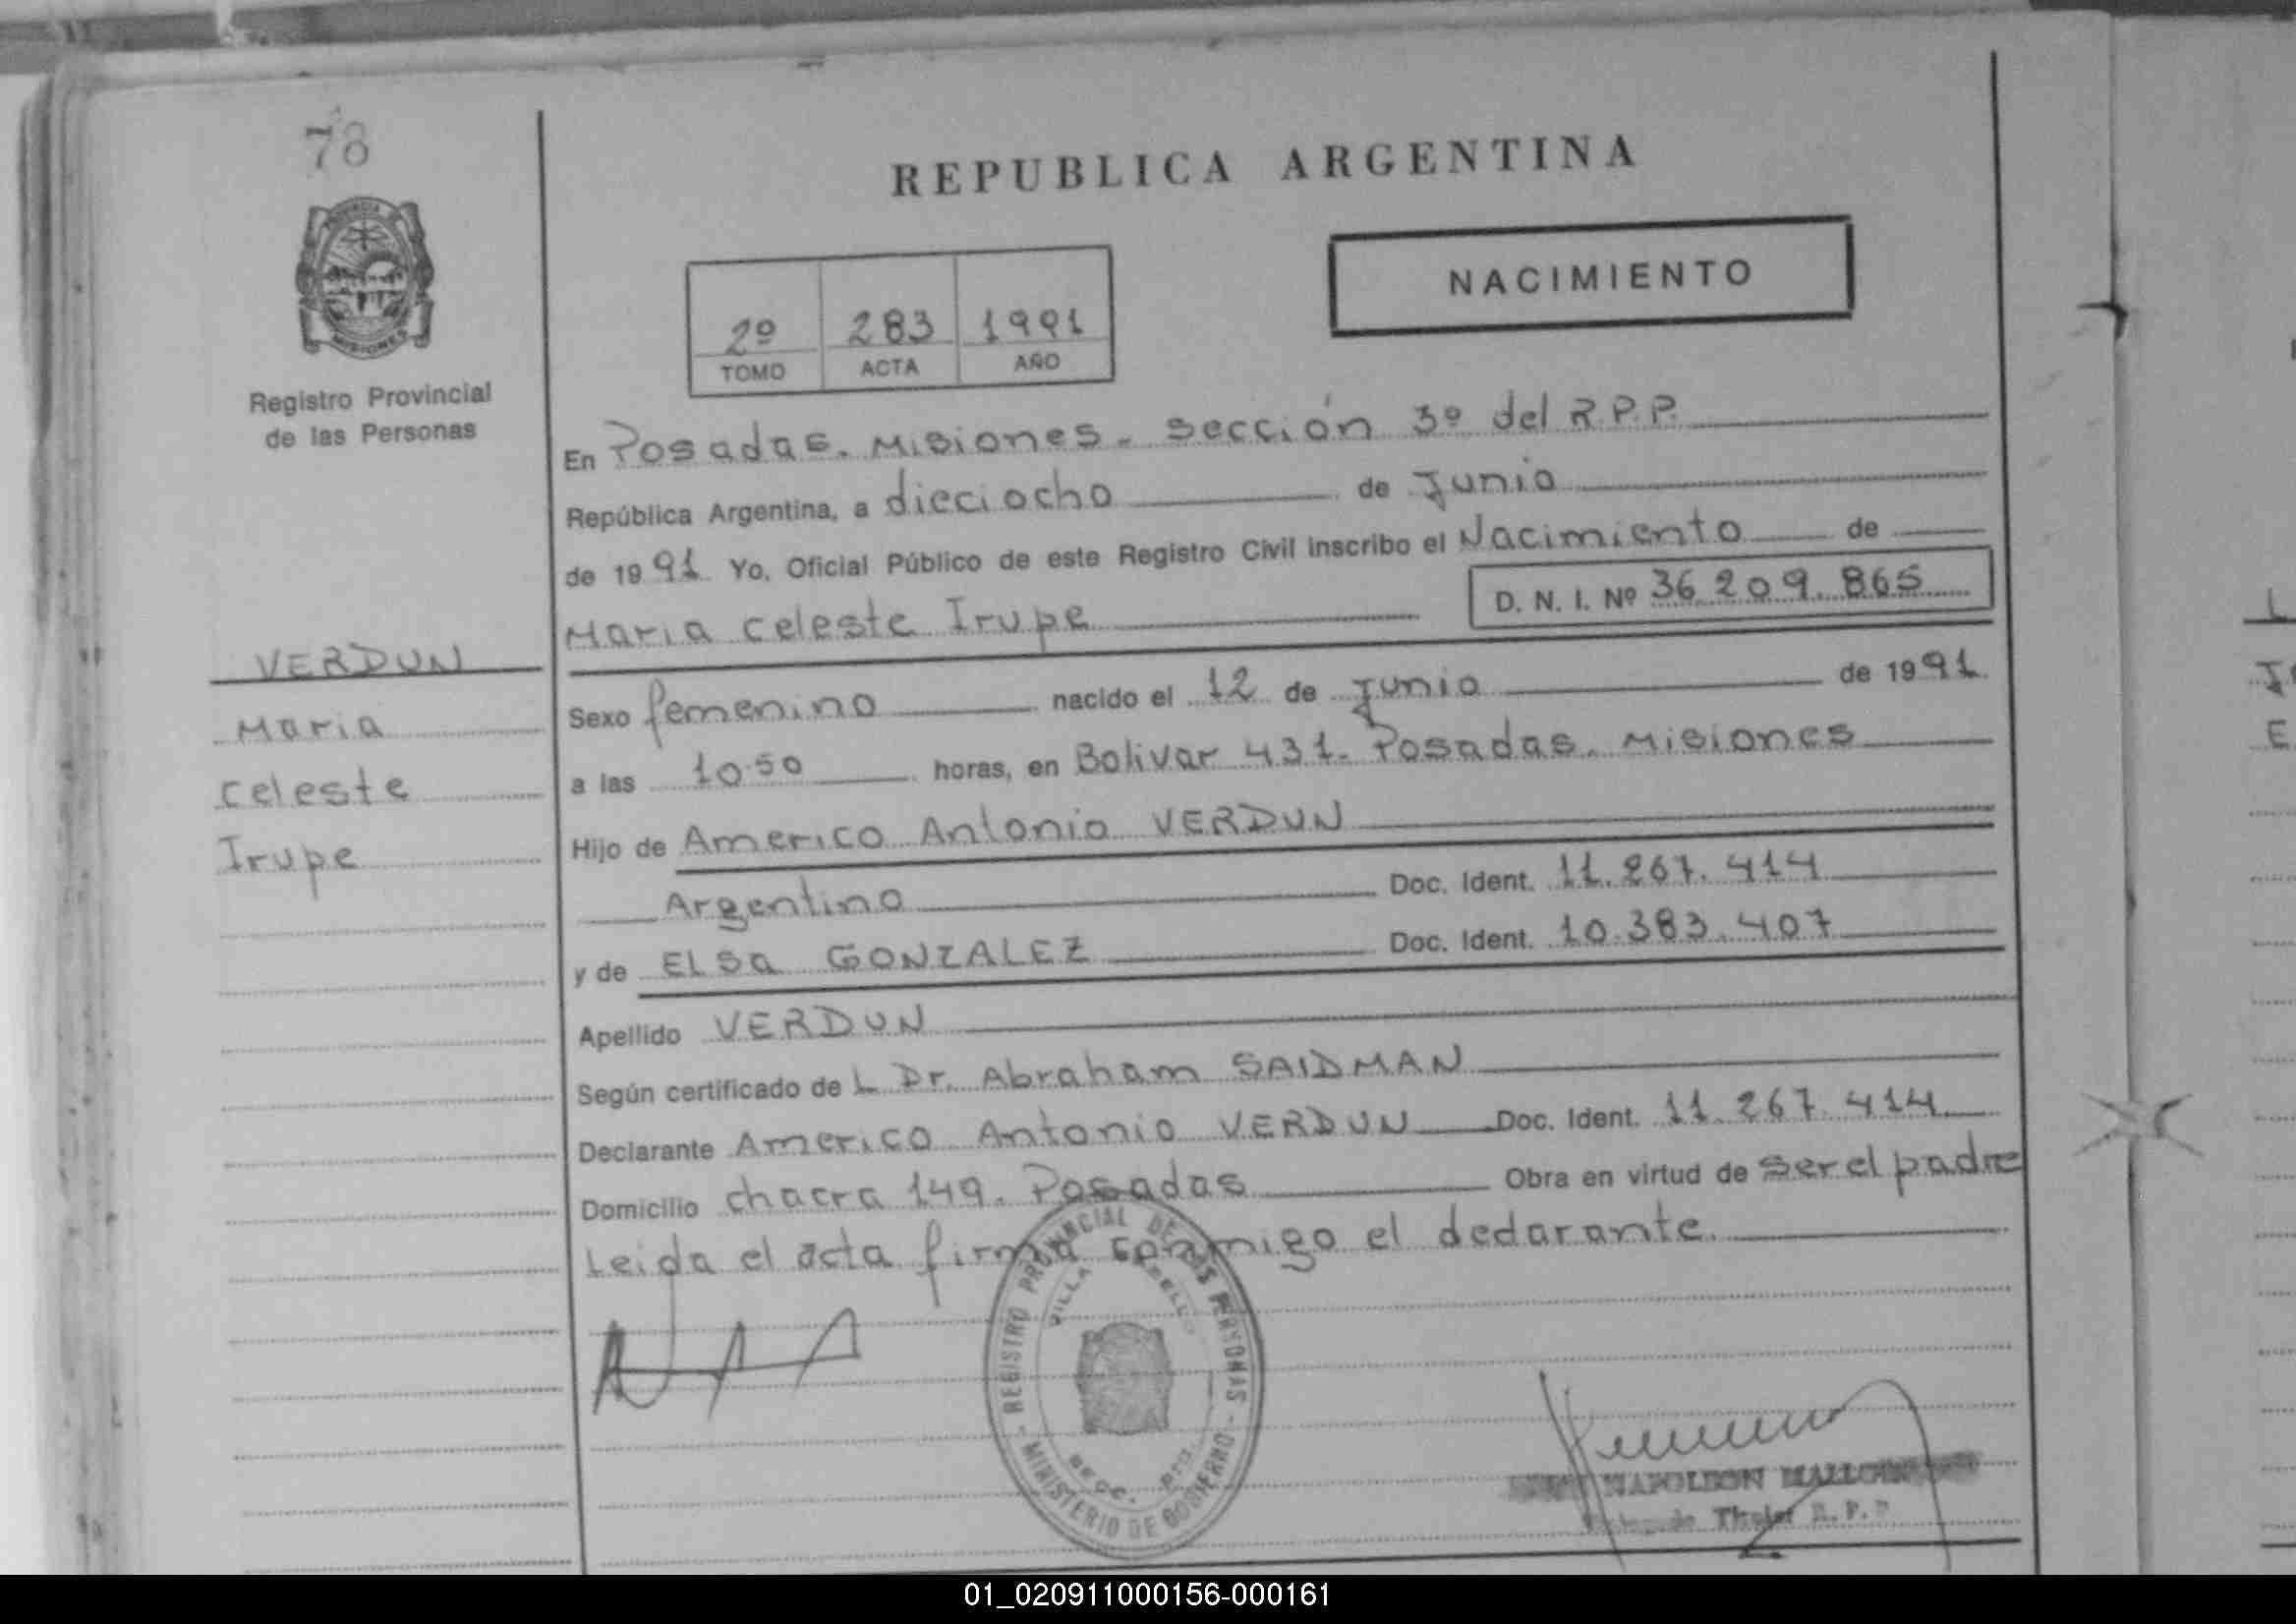 78
PROVINCIA DE
MISIONES
Registro Provincial
de las Personas
VERDUN
Maria
Celeste
Irupe
REPUBLICA ARGENTINA
NACIMIENTO
2º 283 1991
TOMO ACTA AÑO
En Posadas. Misiones - Sección 3º del R.P.P.
República Argentina, a dieciocho de Junio
de 1991 Yo, Oficial Público de este Registro Civil inscribo el Nacimiento de
Maria Celeste Irupe D. N. I. Nº 36.209.865
Sexo femenino nacido el 12 de Junio de 1991
a las 10.50 horas, en Bolivar 431. Posadas. Misiones
Hijo de Americo Antonio VERDUN
Argentino Doc. Ident. 11.267.414
y de Elsa GONZALEZ Doc. Ident. 10.383.407
Apellido VERDUN
Según certificado de L Dr. Abraham SAIDMAN
Declarante Americo Antonio VERDUN Doc. Ident. 11.267.414
Domicilio chacra 149. Posadas Obra en virtud de ser el padre
Leida el acta firma conmigo el declarante.
REGISTRO PROVINCIAL DE LAS PERSONAS
VILLA
SECC.
MINISTERIO DE GOBIERNO
NAPOLEON
Titular R.P.P.
01_020911000156-000161